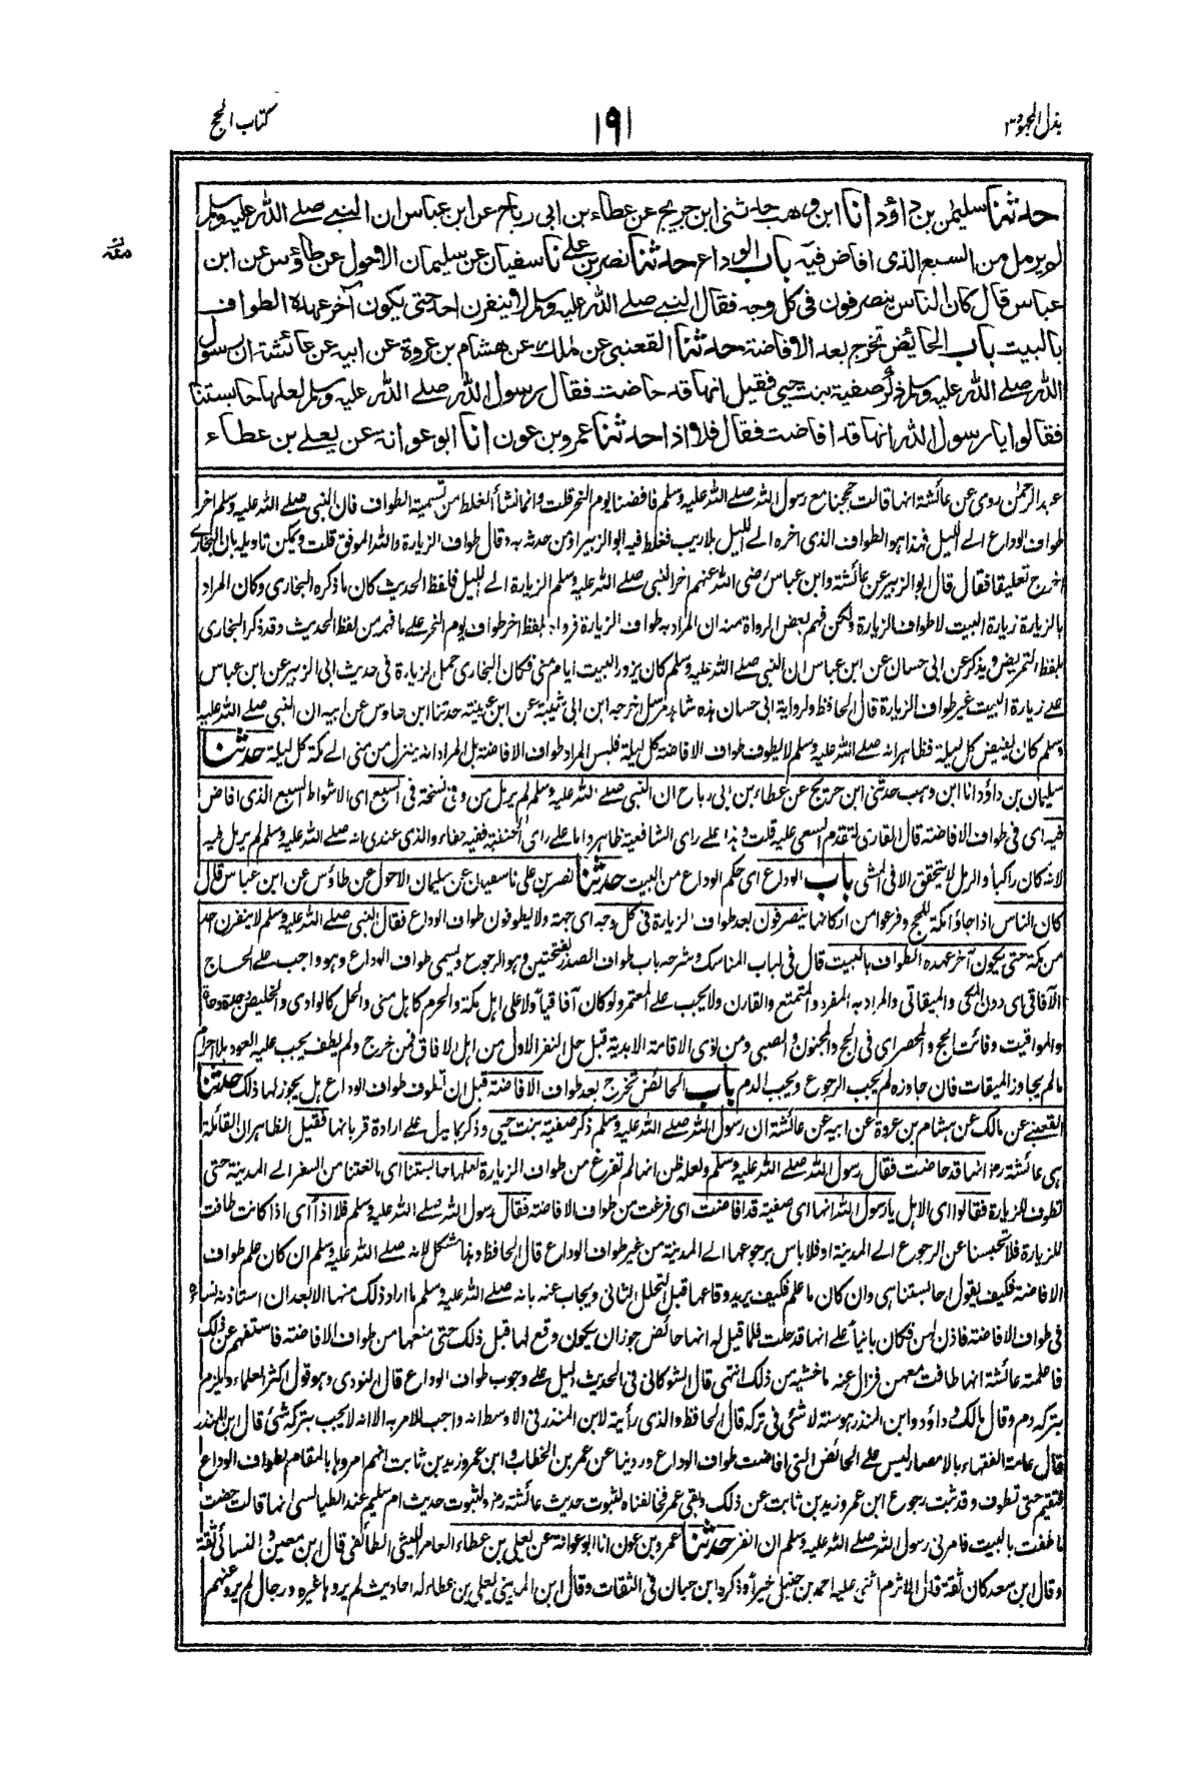 بذل المجهود ٣
١٩١
كتاب الحج
حدثنا سليمن بن داؤد انا ابن وهب حدثنى ابن جريج عن عطاء بن ابى رباح عن ابن عباس ان النبى صلے الله عليه وسلم
لم يرمل من السبع الذى افاض فيه باب الوداع حدثنا نصر بن على نا سفيان عن سليمان الاحول عن طاؤس عن ابن
عباس قال كان الناس ينصرفون فى كل وجه فقال النبى صلے الله عليه وسلم لا ينفرن احد حتى يكون آخر عهده الطواف
بالبيت باب الحائض تخرج بعد الافاضة حدثنا القعنبى عن ملك عن هشام بن عروة عن ابيه عن عائشة ان رسول
الله صلے الله عليه وسلم ذكر صفية بنت حيى فقيل انها قد حاضت فقال رسول الله صلے الله عليه وسلم لعلها حابستنا
فقالوا يا رسول الله انها قد افاضت فقال فلا اذا حدثنا عمرو بن عون انا ابو عوانة عن يعلے بن عطاء
عبد الرحمن روى عن عائشة انها قالت حججنا مع رسول الله صلے الله عليه وسلم فافضنا يوم النحر قلت وانما نشأ الغلط من تسمية الطواف فان النبى صلے الله عليه وسلم اخر
طواف الوداع الے الليل فهذا هو الطواف الذى اخره الے الليل بلا ريب فغلط فيه ابو الزبير او من حدثه به وقال طواف الزيارة والله الموفق قلت ويمكن تاويله بان البخارى
اخرج تعليقا فقال قال ابو الزبير عن عائشة وابن عباس رضى الله عنهم اخر النبى صلے الله عليه وسلم الزيارة الے الليل فلفظ الحديث كان ما ذكره البخارى وكان المراد
بالزيارة زيارة البيت لا طواف الزيارة ولكن فهم بعض الرواة منه ان المراد به طواف الزيارة فرواه بلفظ اخر طواف يوم النحر على ما فهم من لفظ الحديث وقد ذكر البخارى
بلفظ التمريض ويذكر عن ابى حسان عن ابن عباس ان النبى صلے الله عليه وسلم كان يزور البيت ايام منى فكان البخارى حمل الزيارة فى حديث ابى الزبير عن ابن عباس
علے زيارة البيت غير طواف الزيارة قال الحافظ ولرواية ابى حسان هذه شاهد مرسل اخرجه ابن ابى شيبة عن ابن عيينة حدثنا ابن طاوس عن ابيه ان النبى صلے الله عليه
وسلم كان يفيض كل ليلة فظاهر انه صلے الله عليه وسلم لا يطوف طواف الافاضة كل ليلة فليس المراد طواف الافاضة بل المراد انه ينزل من منى الے مكة كل ليلة حدثنا
سليمان بن داؤد انا ابن وهب حدثنى ابن جريج عن عطاء بن ابى رباح ان النبى صلے الله عليه وسلم لم يرمل من وفى نسخة فى السبع اى الاشواط السبع الذى افاض
فيه اى فى طواف الافاضة قال القارى لتقدم السعى عليه قلت وهذا علے راى الشافعية ظاهر واما على راى الحنفية ففيه خفاء والذى عندى انه صلے الله عليه وسلم لم يرمل فيه
لانه كان راكبا والرمل لا يتحقق الا فى المشى باب الوداع اى حكم الوداع من البيت حدثنا نصر بن على نا سفيان عن سليمان الاحول عن طاؤس عن ابن عباس قال
كان الناس اذا جاؤا مكة للحج وفرغوا من اركانها ينصرفون بعد طواف الزيارة فى كل وجه اى جهة ولا يطوفون طواف الوداع فقال النبى صلے الله عليه وسلم لا ينفرن احد
من مكة حتى يكون آخر عهده الطواف بالبيت قال فى لباب المناسك وشرحه باب طواف الصدر بفتحتين وهو الرجوع ويسمى طواف الوداع وهو واجب علے الحاج
الآفاقى اى دون المكى والميقاتى والمراد به المفرد والمتمتع والقارن ولا يجب علے المعتمر ولو كان آفاقيا ولا على اهل مكة والحرم كاهل منى والحل كالوادى والخليص
والمواقيت وفائت الحج والمحصر اى فى الحج والمجنون والصبى ومن نوى الاقامة الابدية قبل حل النفر الاول من اهل الافاق فمن خرج ولم يطف يجب عليه العود بلا احرام
ما لم يجاوز الميقات فان جاوزه لم يجب الرجوع ويجب الدم باب الحائض تخرج بعد طواف الافاضة قبل ان تطوف طواف الوداع هل يجوز لها ذلك حدثنا
القعنبے عن مالك عن هشام بن عروة عن ابيه عن عائشة ان رسول الله صلے الله عليه وسلم ذكر صفية بنت حيى وذكر بما يدل علے ارادة قربانها فقيل الظاهر ان القائلة
هى عائشة رض انها قد حاضت فقال رسول الله صلے الله عليه وسلم ولعله ظن انها لم تفرغ من طواف الزيارة لعلها حابستنا اى مانعتنا من السفر الے المدينة حتى
تطوف للزيارة فقالوا اى الاهل يا رسول الله انها اى صفية قد افاضت اى فرغت من طواف الافاضة فقال رسول الله صلے الله عليه وسلم فلا اذاً اى اذا كانت طافت
للزيارة فلا تحبسنا عن الرجوع الے المدينة او فلا باس برجوعها الے المدينة من غير طواف الوداع قال الحافظ وهذا مشكل لانه صلے الله عليه وسلم ان كان علم طواف
الافاضة فكيف يقول احابستنا هى وان كان ما علم فكيف يريد وقاعها قبل التحلل الثانى ويجاب عنه بانه صلے الله عليه وسلم ما اراد ذلك منها الا بعد ان استاذنه نساءه
فى طواف الافاضة فاذن لهن فكان بانيا علے انها قد حلت فلما قيل له انها حائض جوز ان يكون وقع لها قبل ذلك حتى منعها من طواف الافاضة فاستفهم عن ذلك
فاعلمته عائشة انها طافت معهن فزال عنه ما خشيه من ذلك انتهى قال الشوكانى فى الحديث دليل علے وجوب طواف الوداع قال النووى وهو قول اكثر العلماء ويلزم
بتركه دم وقال مالك وداؤد وابن المنذر هو سنة لا شئ فى تركه قال الحافظ والذى رأيته لابن المنذر فى الاوسط انه واجب للامر به الا انه لا يجب بتركه شئ قال ابن المنذر
قال عامة الفقهاء بالامصار ليس علے الحائض التى افاضت طواف الوداع وروينا عن عمر بن الخطاب وابن عمر وزيد بن ثابت انهم امروها بالمقام لطواف الوداع
فتقيم حتى تطوف وقد ثبت رجوع ابن عمر وزيد بن ثابت عن ذلك وبقى عمر فخالفناه لثبوت حديث عائشة رض ولثبوت حديث ام سليم عند الطيالسى انها قالت حضت
ما طفت بالبيت فامرنى رسول الله صلے الله عليه وسلم ان انفر حدثنا عمرو بن عون انا ابو عوانة عن يعلى بن عطاء العامرى الليثى الطائفى قال ابن معين والنسائى ثقة
وقال ابن سعد كان ثقة قال الاثرم اثنى عليه احمد بن حنبل خيرا وذكره ابن حبان فى الثقات وقال ابن المدينى ليعلى بن عطاء له احاديث لم يروها غيره ورجال لم يرو عنهم